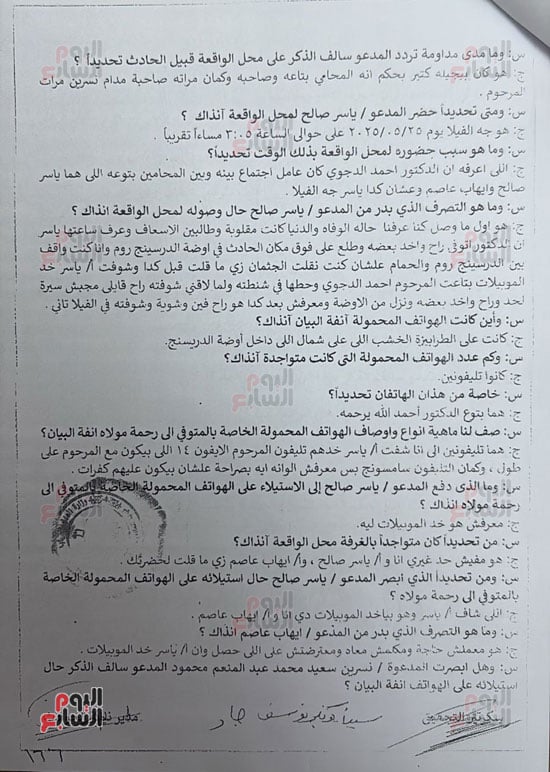 س: وما مدى مداومة تردد المدعو سالف الذكر على محل الواقعة قبيل الحادث تحديداً ؟
ج: هو كان بيجيله كتير بحكم انه المحامي بتاعه وصاحبه وكمان مراته صاحبة مدام نسرين مرات
المرحوم .
س: ومتى تحديداً حضر المدعو / ياسر صالح لمحل الواقعة آنذاك ؟
ج: هو جه الفيلا يوم ٢٠٢٥/٠٥/٢٥ على حوالى الساعة ٣:٠٥ مساءاً تقريباً .
س: وما هو سبب حضوره لمحل الواقعة بذلك الوقت تحديداً؟
ج: اللى اعرفه ان الدكتور احمد الدجوي كان عامل اجتماع بينه وبين المحامين بتوعه اللى هما ياسر
صالح وايهاب عاصم وعشان كدا ياسر جه الفيلا .
س: وما هو التصرف الذي بدر من المدعو / ياسر صالح حال وصوله لمحل الواقعة انذاك؟
ج: هو اول ما وصل كنا عرفنا حاله الوفاه والدنيا كانت مقلوبة وطالبين الاسعاف وعرف ساعتها ياسر
ان الدكتور اتوفى راح واخد بعضه وطلع على فوق مكان الحادث في اوضة الدرسينج روم وانا كنت واقف
بين الدرسينج روم والحمام علشان كنت نقلت الجثمان زي ما قلت قبل كدا وشوفت أ/ ياسر خد
الموبيلات بتاعت المرحوم احمد الدجوي وحطها في شنطته ولما لاقني شوفته راح قايلى مجبش سيرة
لحد وراح واخد بعضه ونزل من الاوضة ومعرفش بعد كدا هو راح فين وشوية وشوفته في الفيلا تاني .
س: وأين كانت الهواتف المحمولة آنفة البيان آنذاك؟
ج: كانت على الطرابيزة الخشب اللى على شمال اللى داخل أوضة الدريسنج.
س: وكم عدد الهواتف المحمولة التى كانت متواجدة آنذاك؟
ج: كانوا تليفونين.
س: خاصة من هذان الهاتفان تحديداً؟
ج: هما بتوع الدكتور أحمد الله يرحمه.
س: صف لنا ماهية انواع واوصاف الهواتف المحمولة الخاصة بالمتوفي الى رحمة مولاه انفة البيان؟
ج: هما تليفونين الى انا شفت أ/ ياسر خدهم تليفون المرحوم الايفون ١٤ اللى بيكون مع المرحوم على
طول ، وكمان التليفون سامسونج بس معرفش الوانه ايه بصراحة علشان بيكون عليهم كفرات .
س: وما الذى دفع المدعو / ياسر صالح إلى الاستيلاء على الهواتف المحمولة الخاصة بالمتوفي الى
رحمة مولاه انذاك ؟
ج: معرفش هو خد الموبيلات ليه.
س: من تحديداً كان متواجداً بالغرفة محل الواقعة آنذاك؟
ج: هو مفيش حد غيري انا و أ/ ياسر صالح ، وأ/ ايهاب عاصم زي ما قلت لحضرتك .
س: ومن تحديداً الذي أبصر المدعو / ياسر صالح حال استيلائه على الهواتف المحمولة الخاصة
بالمتوفي الى رحمة مولاه ؟
ج: اللى شاف أ/ ياسر وهو بياخد الموبيلات دي انا و أ/ ايهاب عاصم .
س: وما هو التصرف الذي بدر من المدعو / ايهاب عاصم انذاك ؟
ج: هو معملش حاجة ومكمنش معاه ومعترضتش على اللى حصل وان أ/ ياسر خد الموبيلات .
س: وهل ابصرت المدعوة / نسرين سعيد محمد عبد المنعم محمود المدعو سالف الذكر حال
استيلائه على الهواتف انفة البيان ؟
سكرتير التحقيق
١٦٦
اليوم السابع